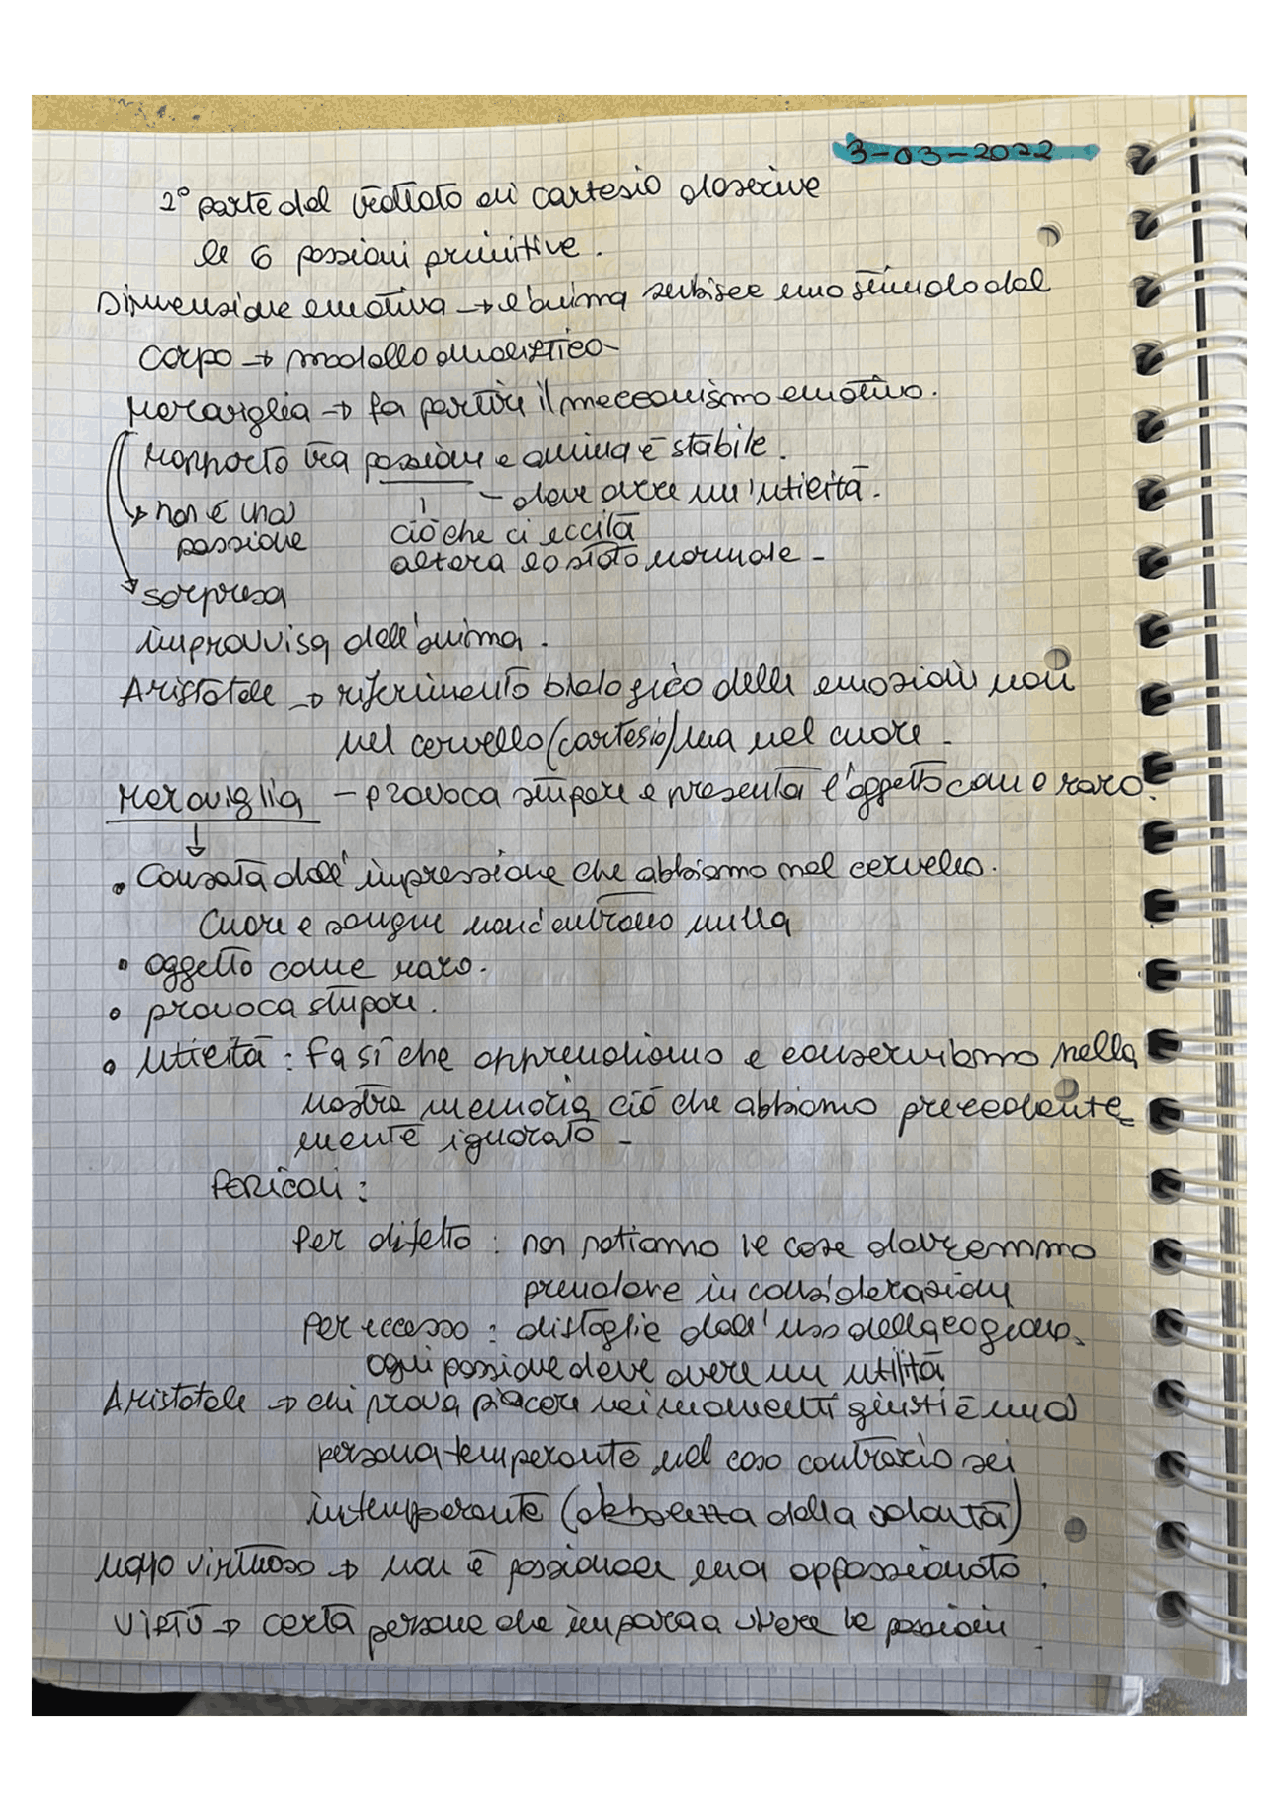 3-03-2022
2° parte del trattato di cartesio descrive
le 6 passioni primitive.
Dimensione emotiva → l'anima subisce uno stimolo dal
corpo → modello dualistico-
Meraviglia → fa partire il meccanismo emotivo.
rapporto tra passioni e anima è stabile.
- deve avere un'utilità.
non è una
passione
ciò che ci eccita
altera lo stato normale -
sorpresa
improvvisa dell'anima.
Aristotele → riferimento biologico delle emozioni non
nel cervello (cartesio) ma nel cuore.
Meraviglia - provoca stupore e presenta l'oggetto come raro.
• Causata dall'impressione che abbiamo nel cervello.
Cuore e sangue non c'entrano nulla
• oggetto come raro.
• provoca stupore.
• utilità: fa sì che apprendiamo e conserviamo nella
nostra memoria ciò che abbiamo precedente_
mente ignorato -
Pericoli:
Per difetto: non notiamo le cose dovremmo
prendere in considerazione
Per eccesso: distoglie dall'uso della ragione.
ogni passione deve avere un utilità
Aristotele → chi prova piacere nei momenti giusti è una
persona temperante nel caso contrario sei
intemperante (debolezza della volontà)
uomo virtuoso → non è passionale ma appassionato.
Virtù → certa persona che impara a vivere le passioni.